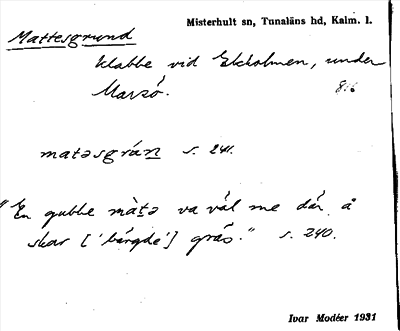 Misterhult sn, Tunaläns hd, Kalm. l.
Mattesgrund
klabbe vid Ekholmen, under
Marsö.
8:6
matəsgrún s. 241.
"En gubbe màtə va väl me där å
skar ['bärgde'] gräs." s. 240.
Ivar Modéer 1931